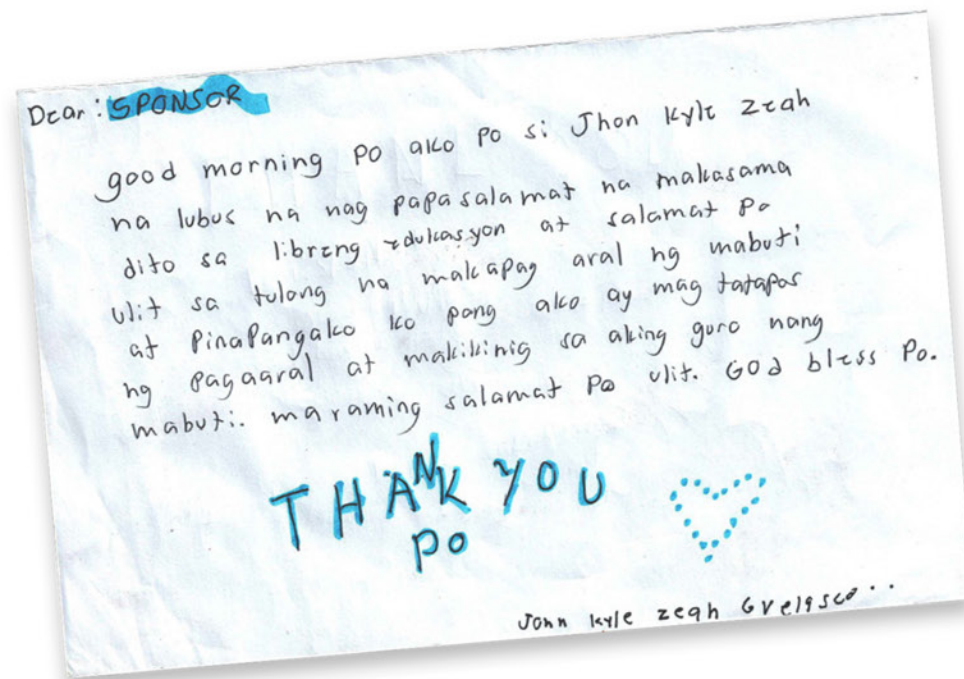 Dear: SPONSOR
good morning po ako po si Jhon Kyle Zeah
na lubus na nag papasalamat na makasama
dito sa libreng edukasyon at salamat po
ulit sa tulong na makapag aral ng mabuti
at Pinapangako ko pong ako ay mag tatapos
ng pagaaral at makikinig sa aking guro nang
mabuti. maraming salamat po ulit. God bless Po.
THANK YOU
po
Jonn kyle zeah G velasco..